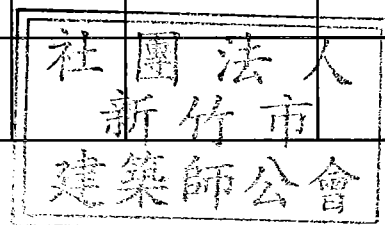 社團法人
新竹市
建築師公會